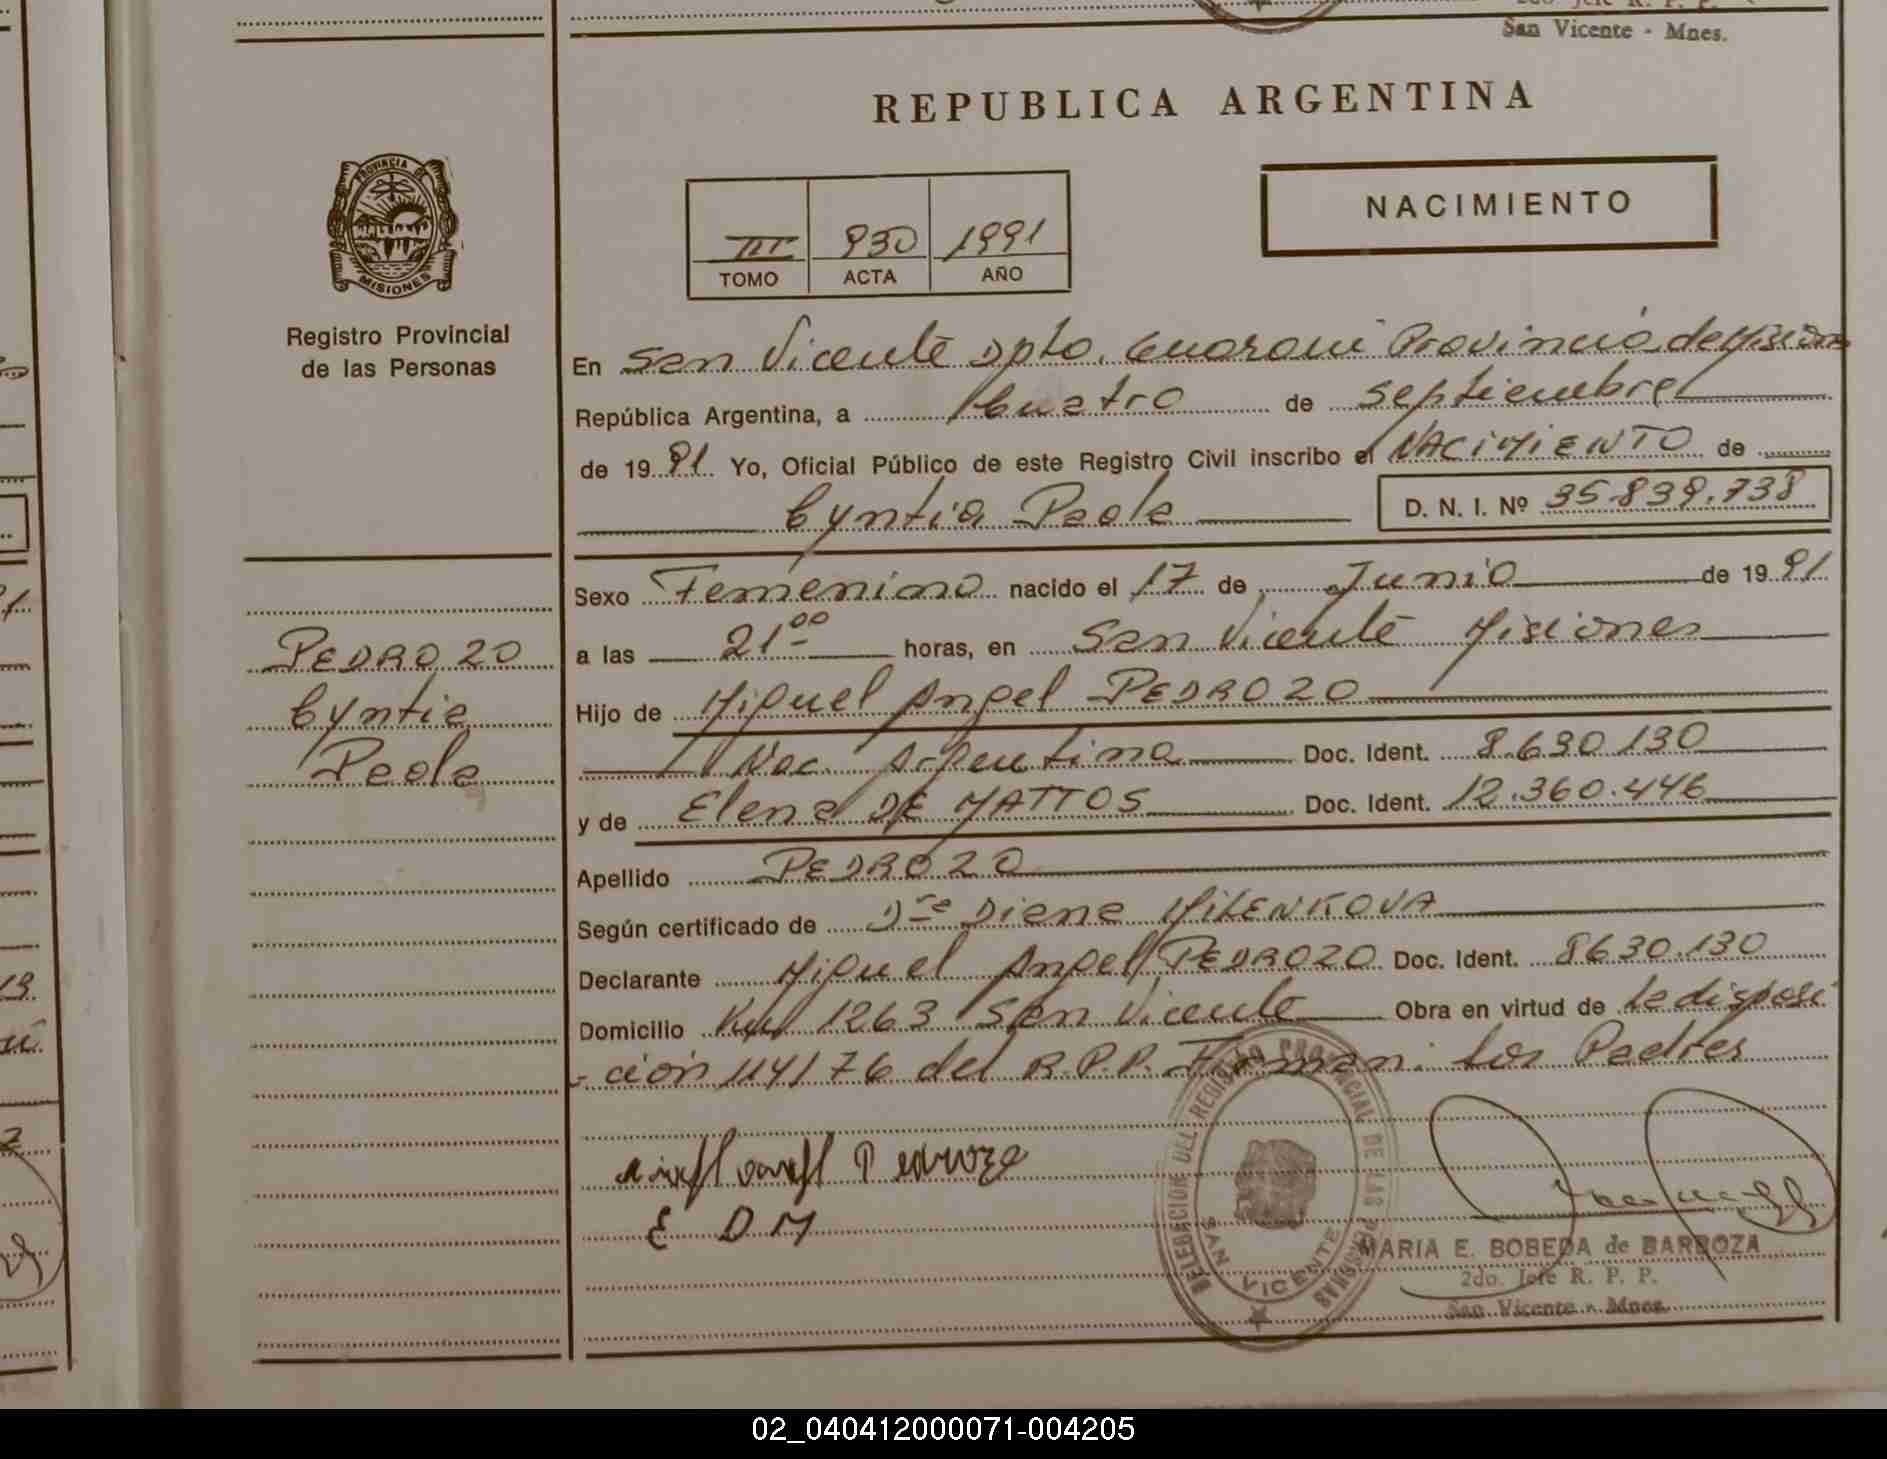 2do. Jefe R. P. P.
San Vicente - Mnes.
REPUBLICA ARGENTINA
PROVINCIA DE
MISIONES
Registro Provincial
de las Personas
NACIMIENTO
III 930 1991
TOMO ACTA AÑO
En San Vicente Dpto. Guarani Provincia de Misiones
República Argentina, a Cuatro de Septiembre
de 1991 Yo, Oficial Público de este Registro Civil inscribo el NACIMIENTO de
Cyntia Paola D. N. I. Nº 35.839.738
Sexo Femenino nacido el 17 de Junio de 1991
a las 21 00 horas, en San Vicente Misiones
Hijo de Miguel Angel PEDROZO
Nac. Argentina Doc. Ident. 8.630.130
y de Elena DE MATTOS Doc. Ident. 12.360.446
Apellido PEDROZO
Según certificado de Dra Diana MILENKOVA
Declarante Miguel Angel PEDROZO Doc. Ident. 8630.130
Domicilio Km 1263 San Vicente Obra en virtud de la disposi
-ción 114/76 del R.P.P. Firman: Los Padres
PEDROZO
Cyntia
Paola
Pedrozo
E D M
DELEGACION DEL REGISTRO PROVINCIAL DE LAS PERSONAS
SAN VICENTE
MARIA E. BOBEDA de BARBOZA
2do. Jefe R. P. P.
San Vicente - Mnes.
02_040412000071-004205